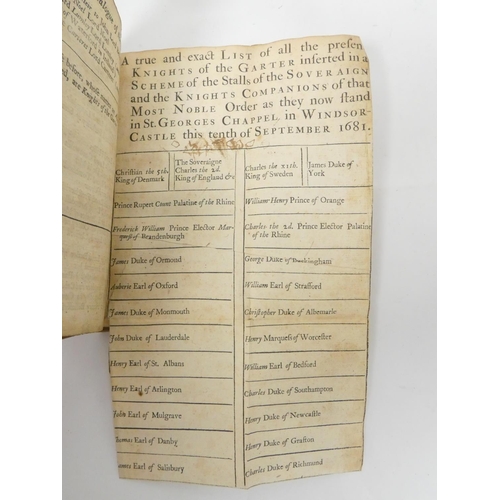 A true and exact LIST of all the presen
KNIGHTS of the GARTER inserted in a
SCHEME of the Stalls of the SOVERAIGN
and the KNIGHTS COMPANIONS of that
MOST NOBLE Order as they now stand
in St. GEORGES CHAPPEL, in WINDSOR-
CASTLE this tenth of SEPTEMBER 1681.
Christian the 5th.
King of Denmark
The Soveraigne
Charles the 2d.
King of England &c
Charles the 11th.
King of Sweden
James Duke of
York
Prince Rupert Count Palatine of the Rhine
Frederick William Prince Elector Mar-
quess of Brandenburgh
James Duke of Ormond
Auberie Earl of Oxford
James Duke of Monmouth
John Duke of Lauderdale
Henry Earl of St. Albans
Henry Earl of Arlington
John Earl of Mulgrave
Thomas Earl of Danby
James Earl of Salisbury
William Henry Prince of Orange
Charles the 2d. Prince Elector Palatine
of the Rhine
George Duke of Buckingham
William Earl of Strafford
Christopher Duke of Albemarle
Henry Marquess of Worcester
William Earl of Bedford
Charles Duke of Southampton
Henry Duke of Newcastle
Henry Duke of Grafton
Charles Duke of Richmond